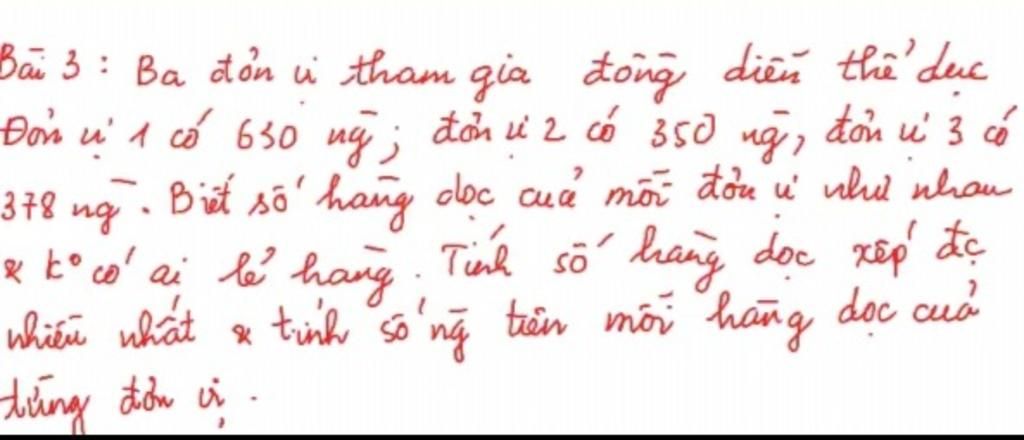 Bài 3 : Ba đơn vị tham gia đồng diễn thể dục
Đơn vị 1 có 630 ng̅ ; đơn vị 2 có 350 ng̅, đơn vị 3 có
378 ng̅. Biết số hàng dọc của mỗi đơn vị như nhau
& k° có ai lẻ hàng. Tính số hàng dọc xếp đc
nhiều nhất & tính số ng̅ trên mỗi hàng dọc của
từng đơn vị.